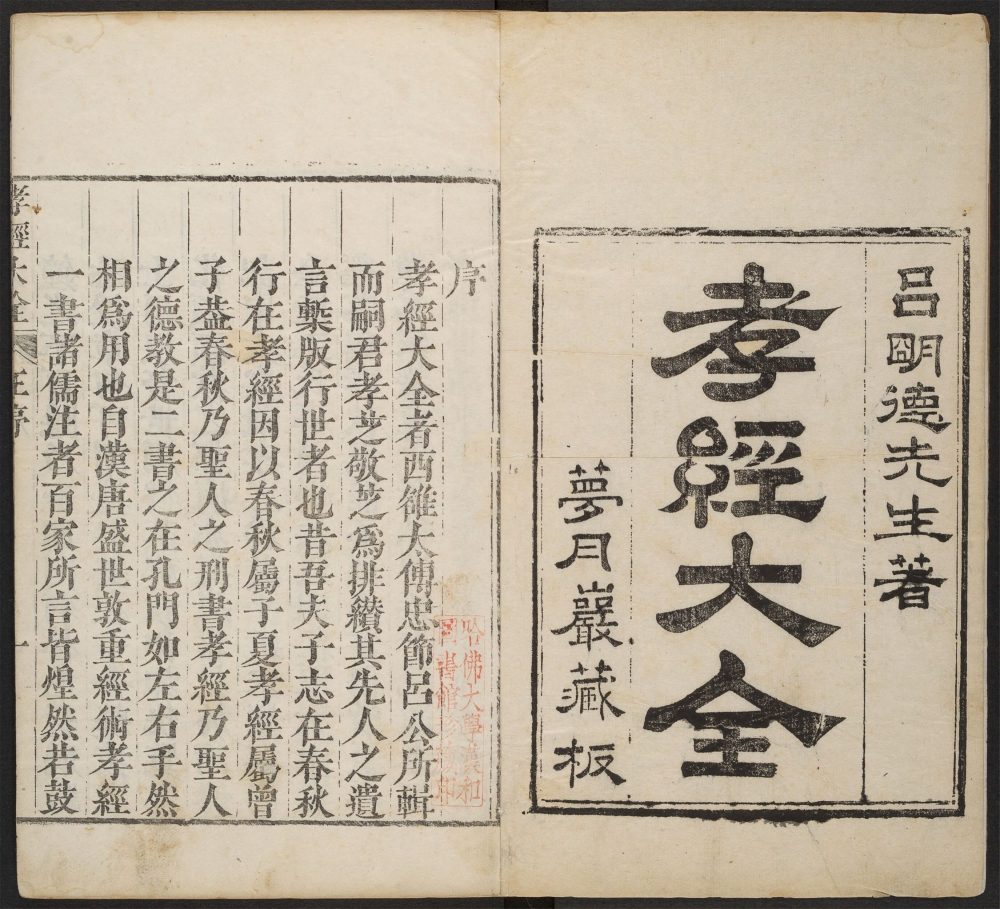 呂明德先生著
孝經大全
夢月巖藏板
序
孝經大全者西雒太傅忠節呂公所輯
而嗣君孝芝敬芝爲排纘其先人之遺
言槧版行世者也昔吾夫子志在春秋
行在孝經因以春秋屬子夏孝經屬曾
子葢春秋乃聖人之刑書孝經乃聖人
之德教是二書之在孔門如左右手然
相爲用也自漢唐盛世敦重經術孝經
一書諸儒注者百家所言皆煌然若鼓
孝經大全
序
一
哈佛大學漢和
圖書館珍藏印